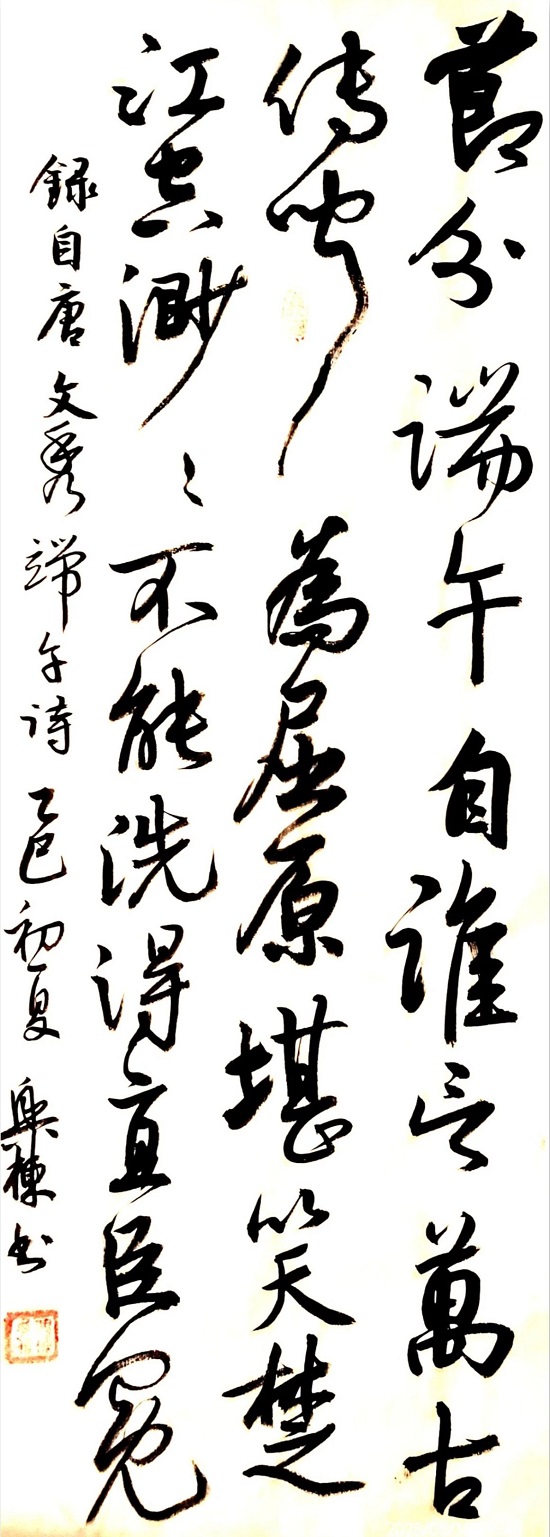 節分端午自誰言萬古
傳聞為屈原堪笑楚
江空渺〻不能洗得直臣冤
録自唐文秀端午诗乙巳初夏樂棟书